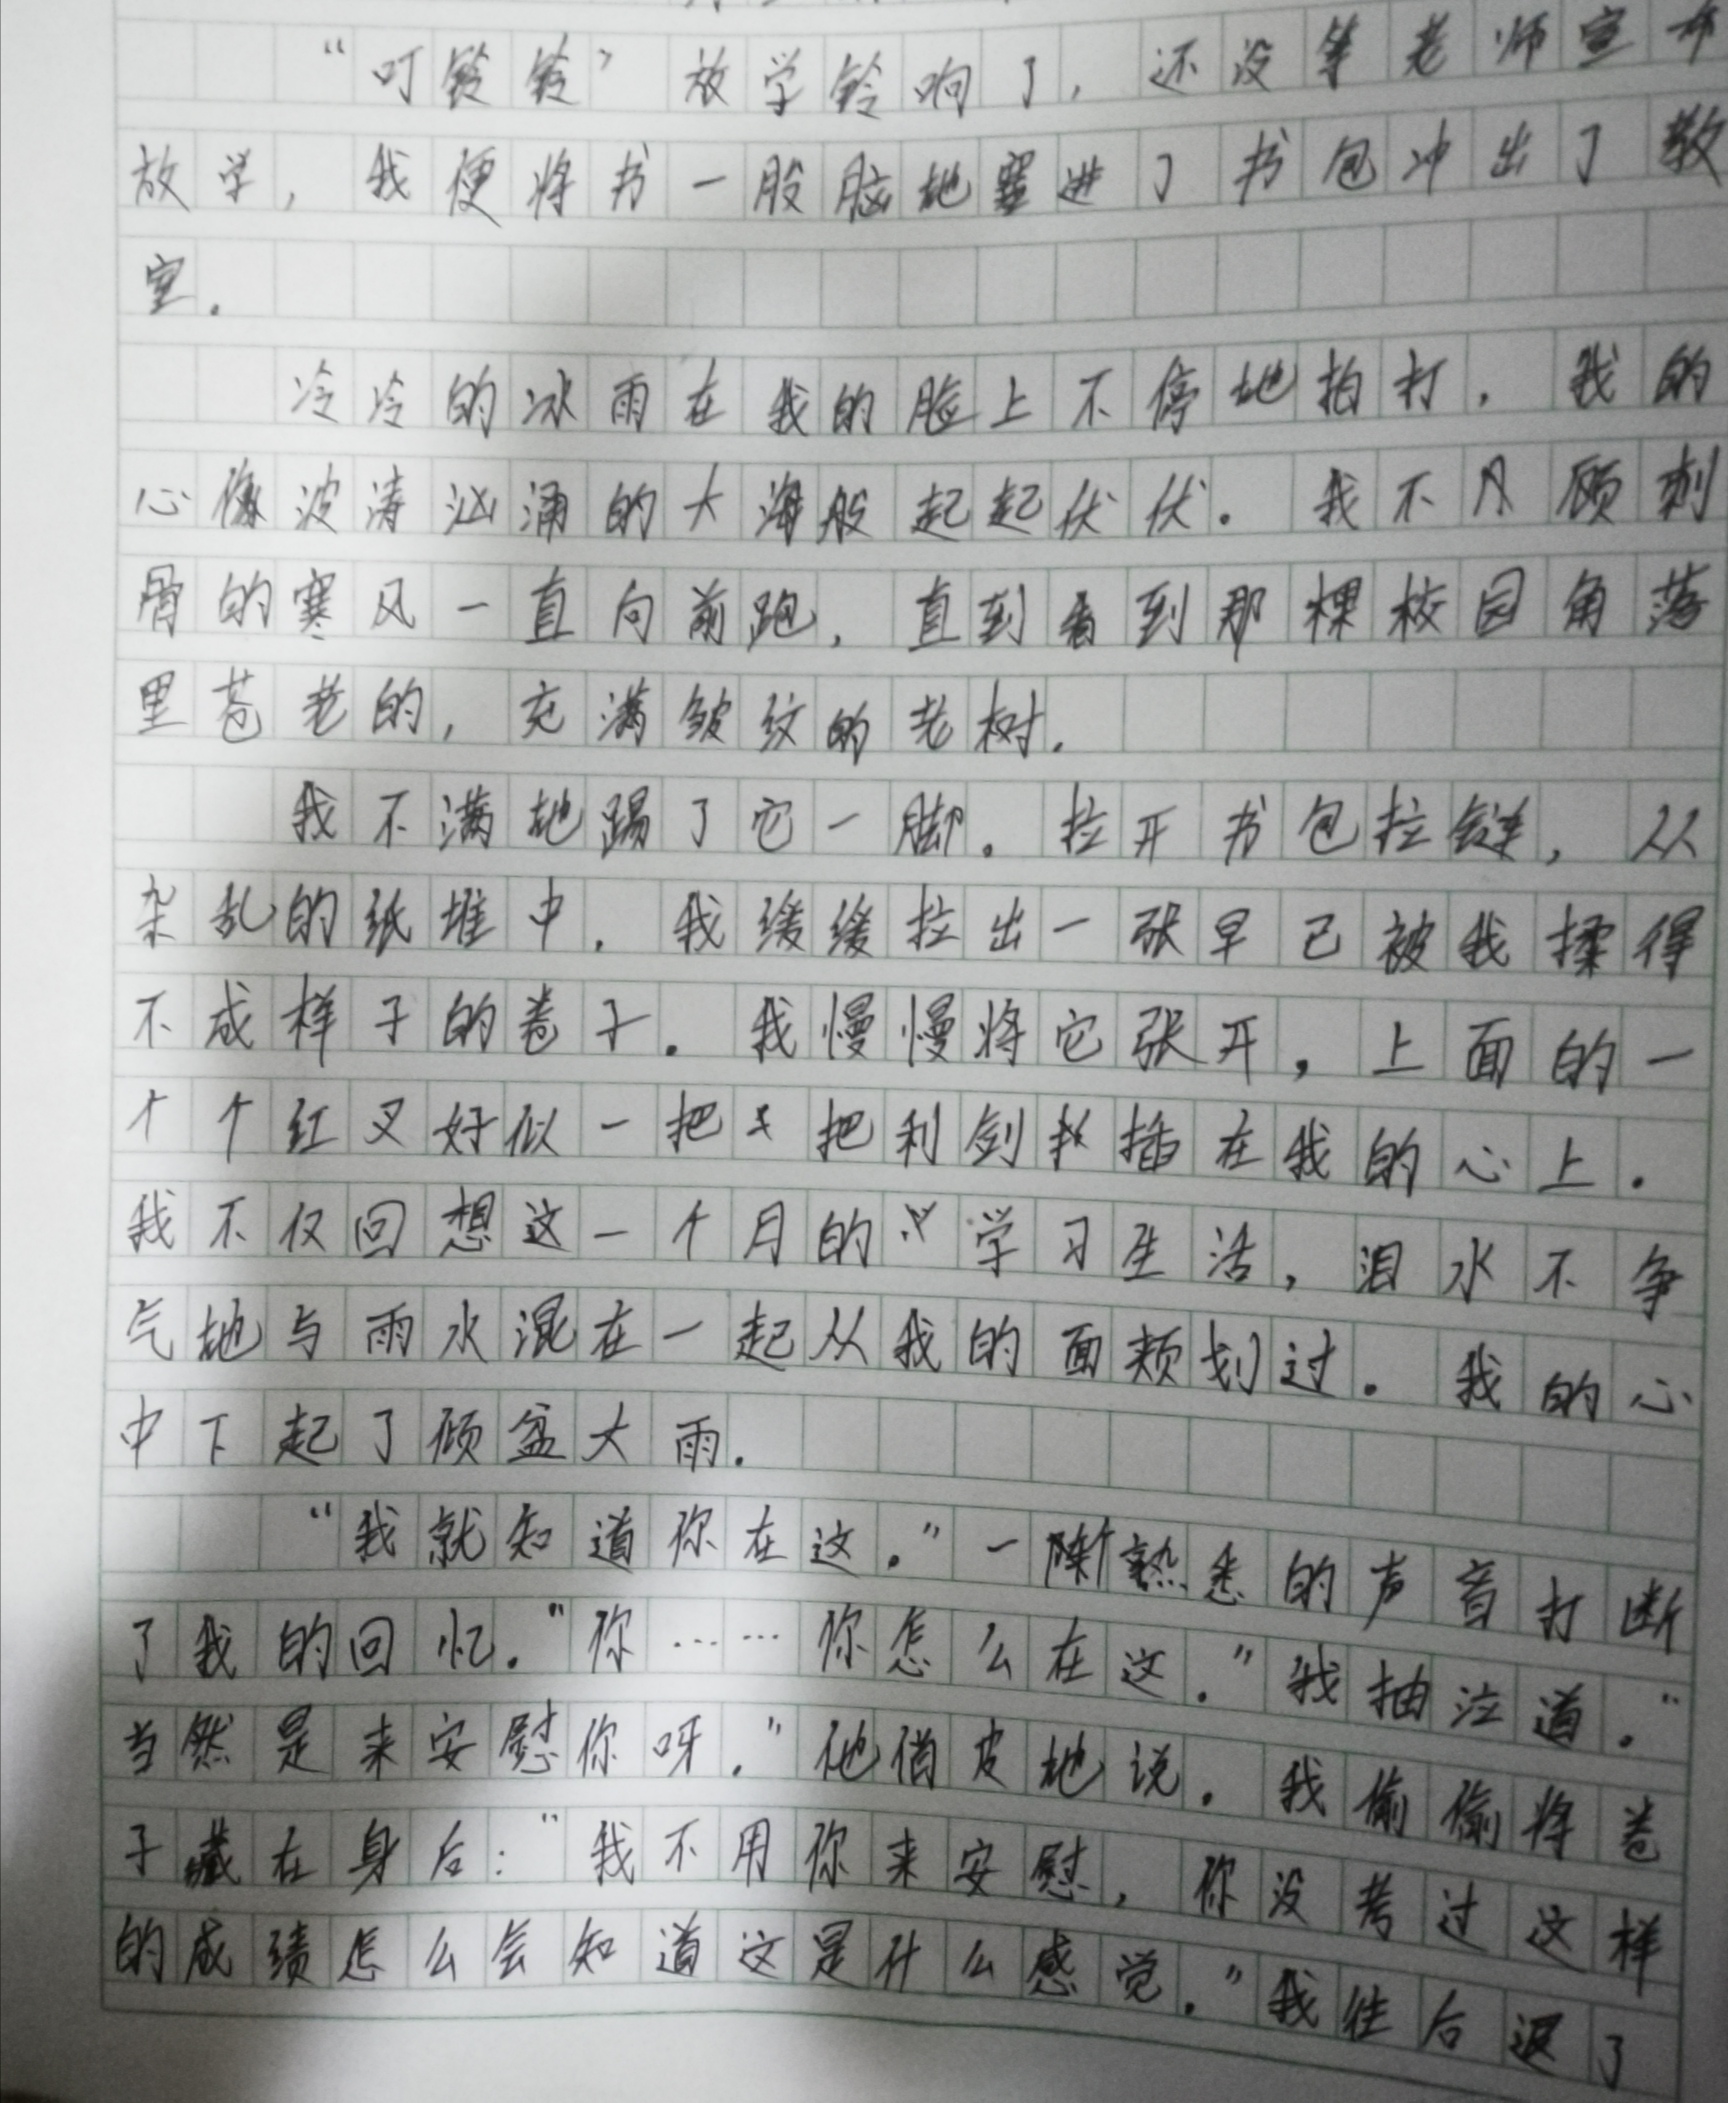 “叮铃铃”放学铃响了，还没等老师宣布
放学，我便将书一股脑地塞进了书包冲出了教
室.
冷冷的冰雨在我的脸上不停地拍打，我的
心像波涛汹涌的大海般起起伏伏.我不顾刺
骨的寒风一直向前跑，直到看到那棵校园角落
里苍老的，充满皱纹的老树.
我不满地踢了它一脚。拉开书包拉链，从
杂乱的纸堆中，我缓缓拉出一张早已被我揉得
不成样子的卷子.我慢慢将它张开，上面的一
个个红叉好似一把把利剑插在我的心上.
我不仅回想这一个月的学习生活，泪水不争
气地与雨水混在一起从我的面颊划过.我的心
中下起了倾盆大雨.
“我就知道你在这.”一阵熟悉的声音打断
了我的回忆.“你……你怎么在这.”我抽泣道.“
当然是来安慰你呀.”他俏皮地说.我偷偷将卷
子藏在身后：“我不用你来安慰，你没考过这样
的成绩怎么会知道这是什么感觉.”我往后退了